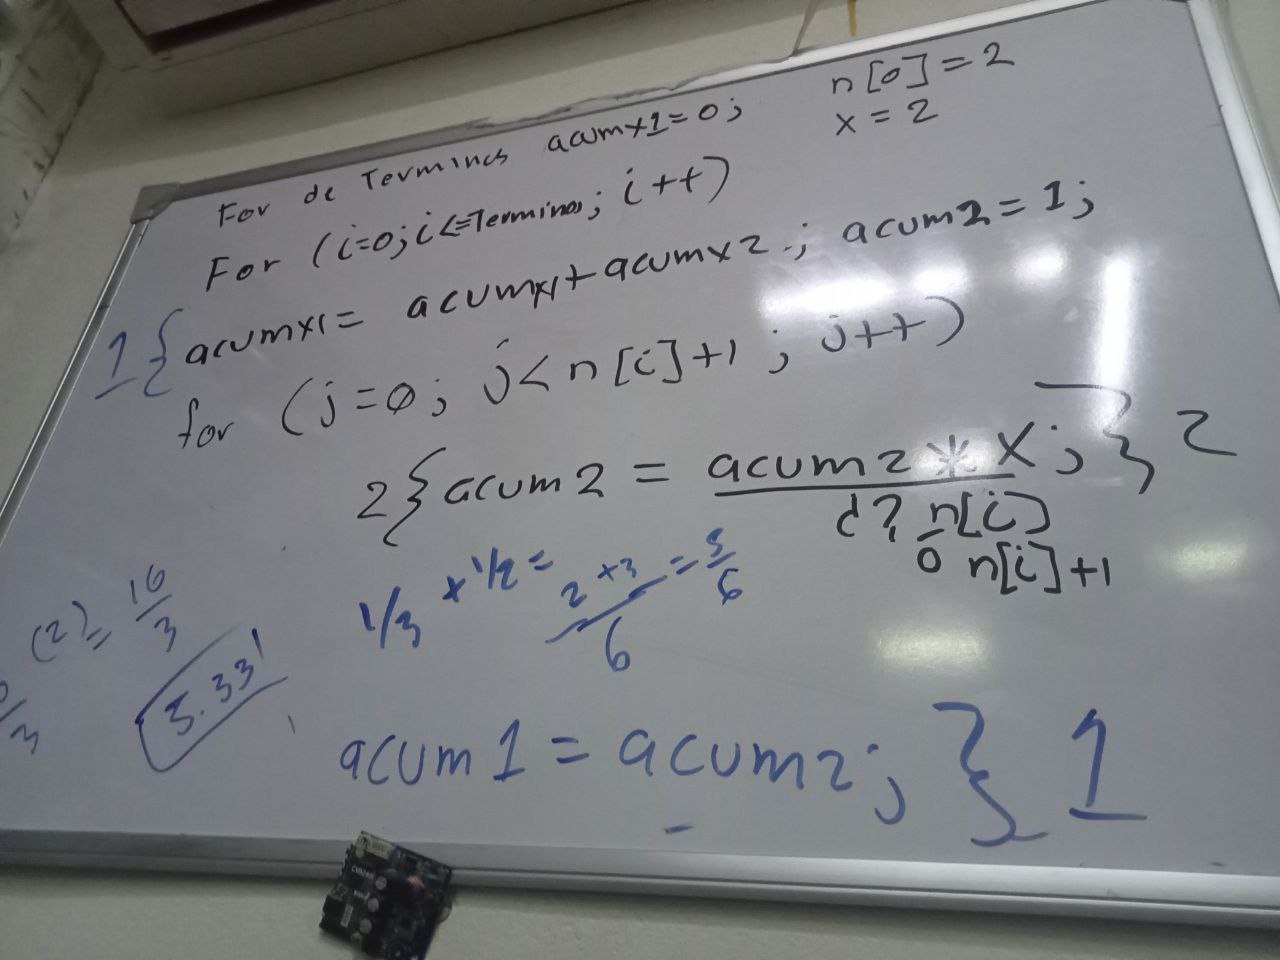 n[0]=2
x=2
For de Terminos acumx1=0;
For (i=0; i<=Terminos; i++)
1{acumx1= acumx1+acumx2.; acum2=1;
for (j=0; j<n[i]+1; j++)
2{acum2 = acum2*X;}2
¿? n[i]
0 n[i]+1
1/3 + 1/2 = 2+3 = 5
6 6
(2)= 16
3
5.33'
acum1 = acum2; }1